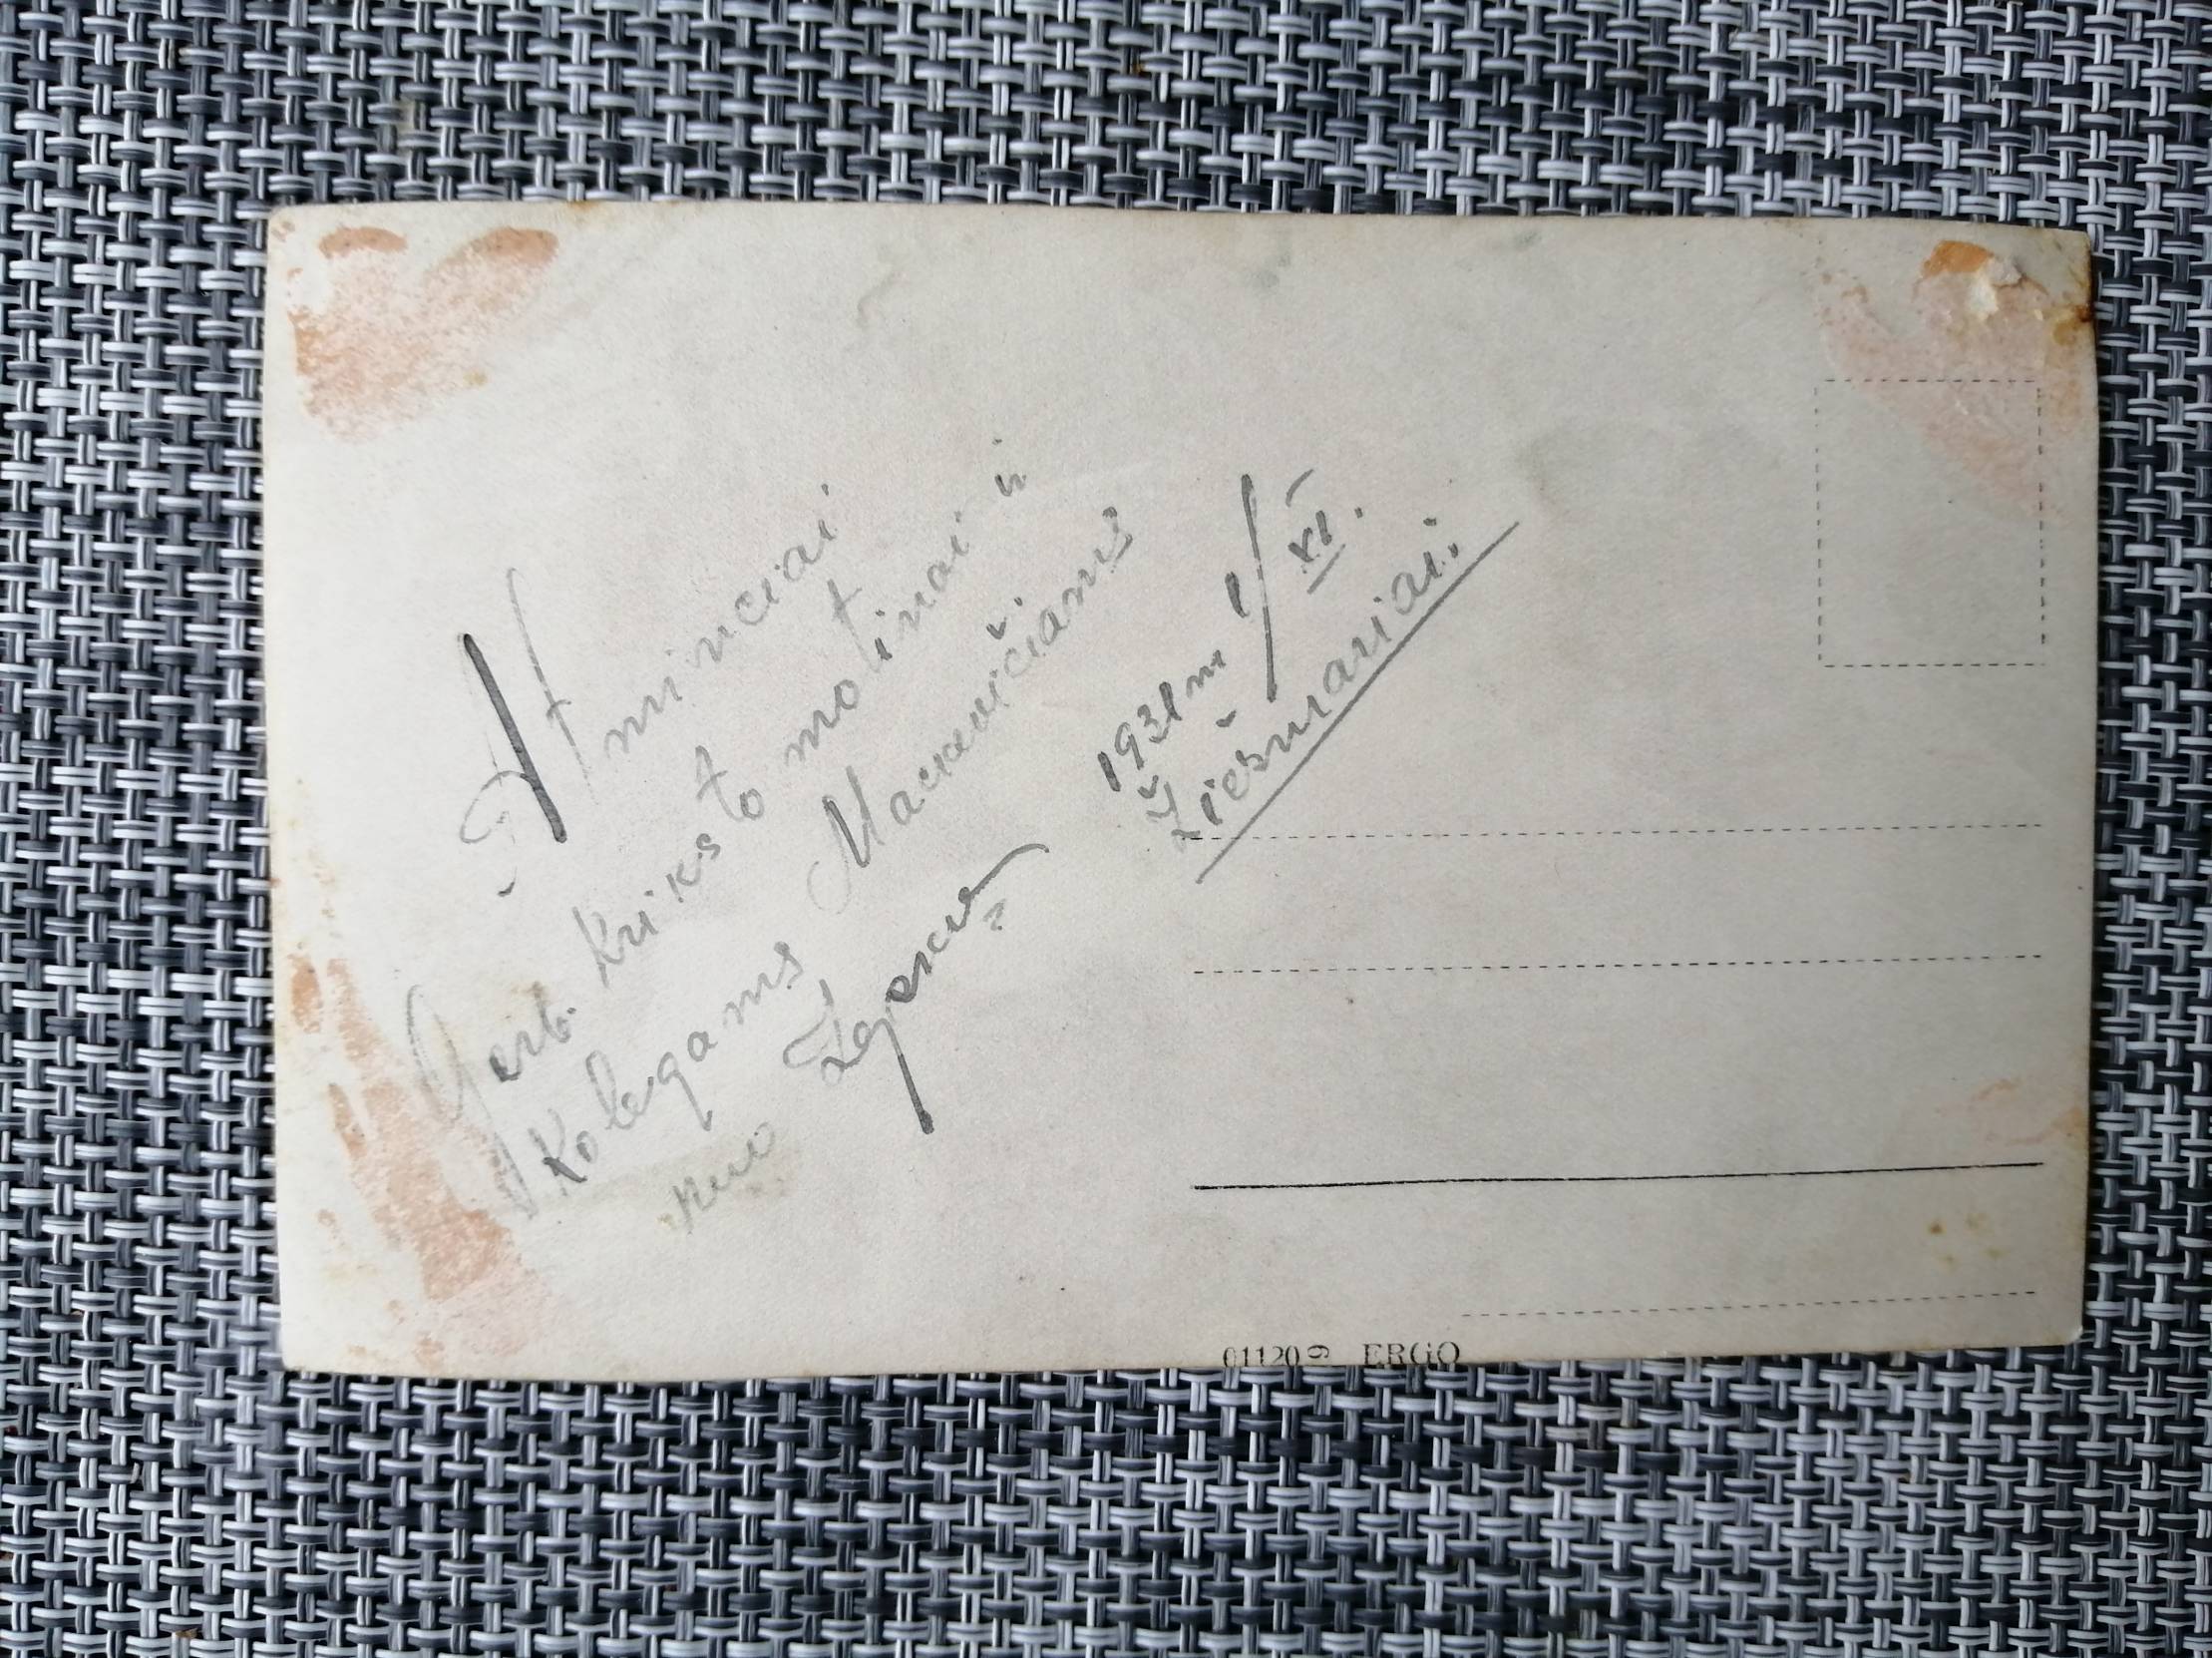 Atminčiai
Gerb. Kriksto motinai ir
Kolegams Mackevičiams
nuo
1931 m 1/XI.
Žiešmariai.
011209 ERGO